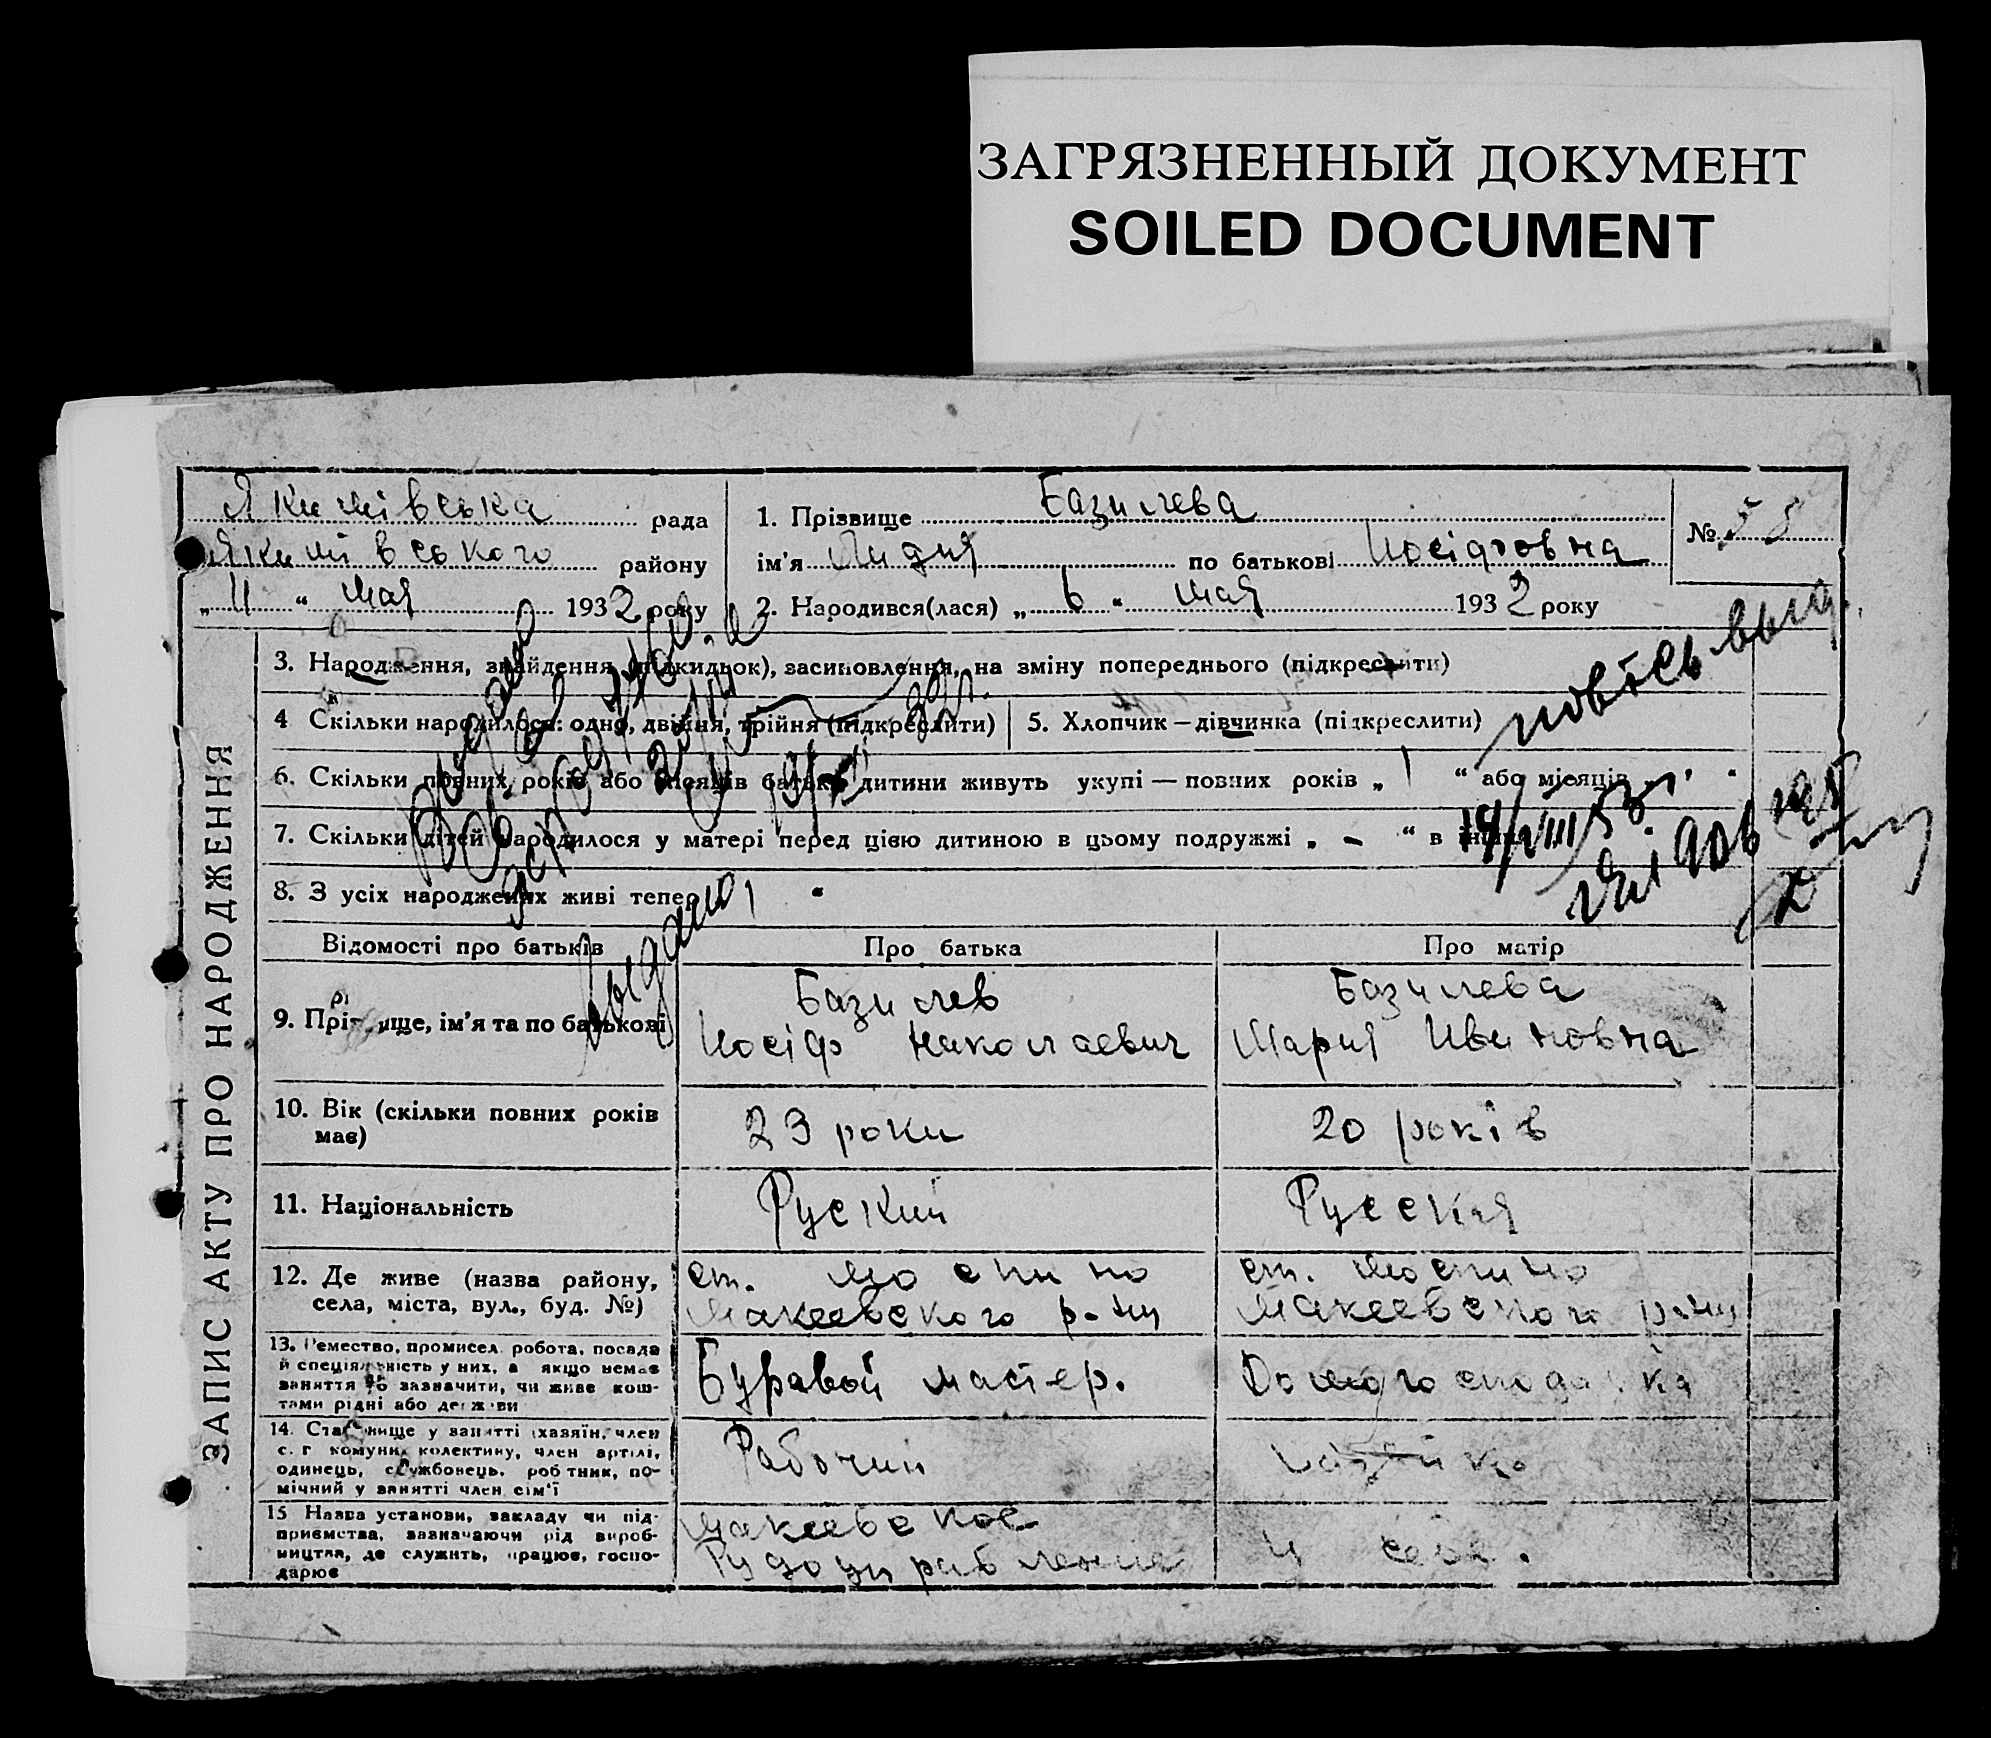 ЗАГРЯЗНЕННЫЙ ДОКУМЕНТ
SOILED DOCUMENT
Якимівська рада
Якимівського району
„ 11 “ мая 1932 року
1. Прізвище Базилева
ім'я Лидия по батькові Иосіфовна
2. Народився(лася) „ 6 “ мая 1932 року
№ 55
ЗАПИС АКТУ ПРО НАРОДЖЕННЯ
3. Народження, знайдення (підкидьок), засиновлення, на зміну попереднього (підкреслити)
4 Скільки народилося: одно, двійня, трійня (підкреслити)
5. Хлопчик — дівчинка (підкреслити)
6. Скільки повних років або місяців батьки дитини живуть укупі — повних років „ 1 “ або місяців
7. Скільки дітей народилося у матері перед цією дитиною в цьому подружжі „ - “ в
8. З усіх народжених живі тепер
повтсь выд.
14/VIII 53 г.
выдано
Відомості про батьків
Про батька
Про матір
9. Прізвище, ім'я та по батькові
Базилев
Иосіф Николаевич
Базилева
Мария Ивановна
10. Вік (скільки повних років має)
23 роки
20 років
11. Національність
Руский
Русская
12. Де живе (назва району,
села, міста, вул., буд. №)
ст. Моспино
Макеевского р-ну
ст. Моспино
Макеевского р-ну
13. Ремество, промисел, робота, посада
й спеціяльність у них, а якщо немає
заняття то зазначити, чи живе кош-
тами рідні або держави
Буравой мастер.
Домогосподарка
14. Становище у занятті (хазяїн, член
с. г комуни, колективу, член артілі,
одинець, службовець, робітник, по-
мічний у занятті член сім'ї
Рабочий
15 Назва установи, закладу чи під-
приємства, зазначаючи рід вироб-
ництва, де служить, працює, госпо-
дарює
Макеевское
Рудоуправление
У себе.